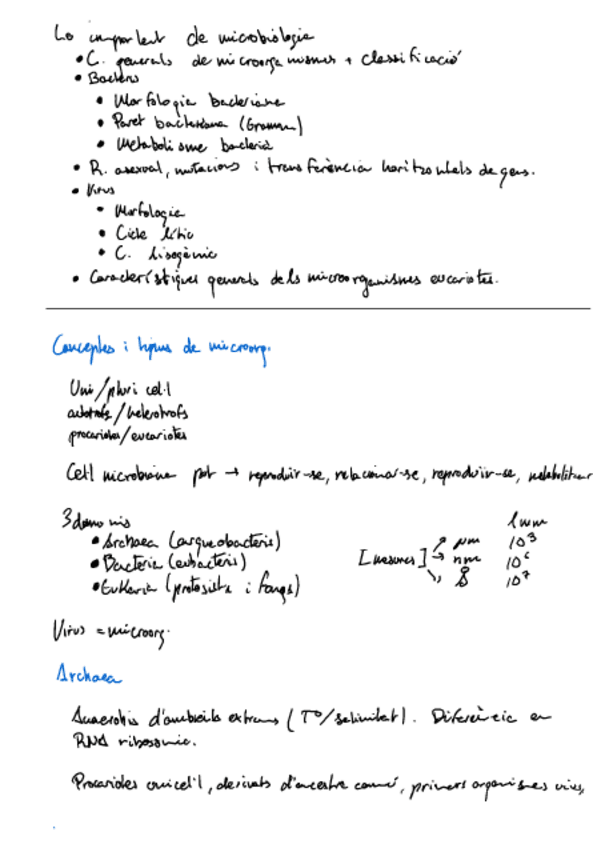 Lo important de microbiologia
• C. generals de microorganismes + classificació
• Bacteris
• Morfologia bacteriana
• Paret bacteriana (Gramm)
• Metabolisme bacterià
• R. asexual, mutacions i transferència horitzontals de gens.
• Virus
• Morfologia
• Cicle lític
• C. lisogènic
• Característiques generals dels microorganismes eucariotes.
Conceptes i tipus de microorg.
Uni/pluri cel·l
autotrofs/heterotrofs
procariotes/eucariotes
Cell microbiana pot → reproduir-se, relacionar-se, reproduir-se, metabolitzar
3 dominis
• Archaea (arqueobacteris)
• Bacteria (eubacteris)
• Eukaria (protoctista i fongs)
1mm
[mesures] → µm 10³
nm 10⁶
Å 10⁷
Virus = microorg.
Archaea
Anaerobis d'ambients extrems (Tº/salinitat). Diferència en
RNA ribosòmic.
Procariotes unicel·l, derivats d'ancestre comú, primers organismes vius,